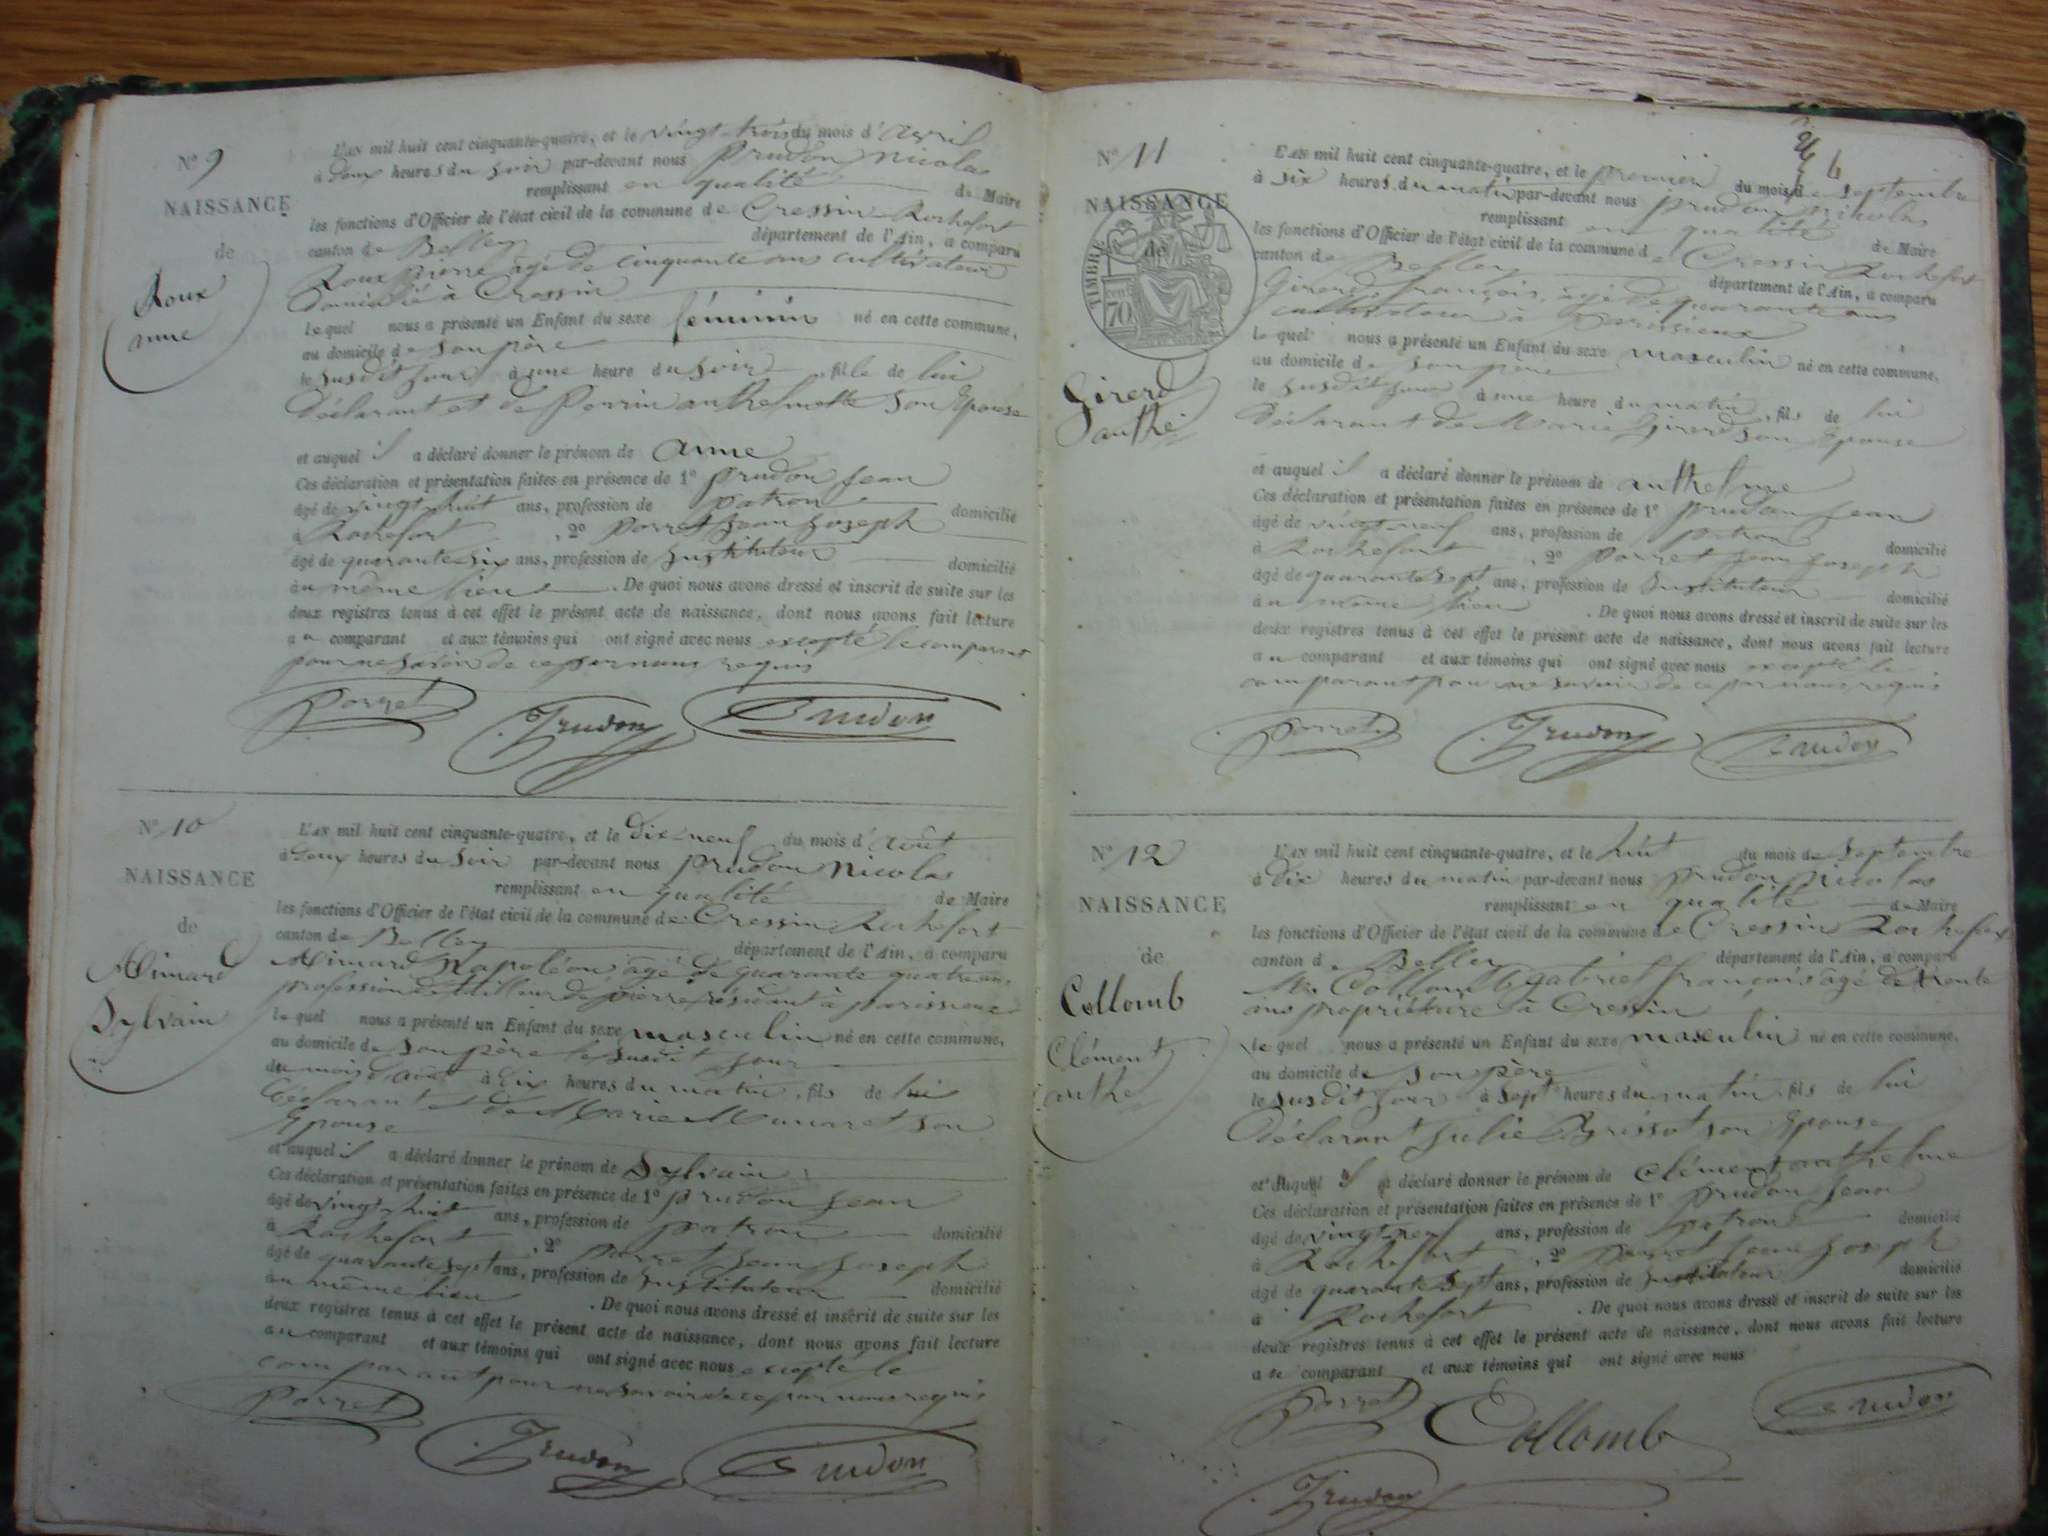 N° 9
NAISSANCE
de
Roux
anne
L'AN mil huit cent cinquante-quatre, et le vingt-trois du mois d'avril
à deux heures du soir par-devant nous prudon nicolas
remplissant en qualité de Maire
les fonctions d'Officier de l'état civil de la commune de Cressin Rochefort
canton de Belley département de l'Ain, a comparu
Roux pierre âgé de cinquante ans cultivateur
domicilié à Cressin
lequel nous a présenté un Enfant du sexe féminin né en cette commune,
au domicile de son père
le susdit jour à une heure du soir fille de lui
déclarant et de Perrin anthelmette son Epouse
et auquel il a déclaré donner le prénom de anne
Ces déclaration et présentation faites en présence de 1° prudon jean
âgé de vingt huit ans, profession de patron domicilié
à Rochefort, 2° porret jean joseph
âgé de quarante six ans, profession de instituteur domicilié
au même lieu. De quoi nous avons dressé et inscrit de suite sur les
deux registres tenus à cet effet le présent acte de naissance, dont nous avons fait lecture
au comparant et aux témoins qui ont signé avec nous excepté le comparant
pour ne savoir de ce par nous requis
porret Prudon Prudon
N° 10
NAISSANCE
de
Mimard
Sylvain
L'AN mil huit cent cinquante-quatre, et le dix-neuf du mois d'août
à deux heures du soir par-devant nous prudon nicolas
remplissant en qualité de Maire
les fonctions d'Officier de l'état civil de la commune de Cressin Rochefort
canton de Belley département de l'Ain, a comparu
Mimard Napoléon âgé de quarante quatre ans
profession de tailleur de pierre résidant à parissieux
lequel nous a présenté un Enfant du sexe masculin né en cette commune,
au domicile de son père le susdit jour
du mois d'août à dix heures du matin, fils de lui
déclarant et de Marie son
Epouse
et auquel il a déclaré donner le prénom de Sylvain
Ces déclaration et présentation faites en présence de 1° prudon jean
âgé de vingt huit ans, profession de patron domicilié
à Rochefort, 2° porret jean joseph
âgé de quarante sept ans, profession de instituteur domicilié
au même lieu. De quoi nous avons dressé et inscrit de suite sur les
deux registres tenus à cet effet le présent acte de naissance, dont nous avons fait lecture
au comparant et aux témoins qui ont signé avec nous excepté le
comparant pour ne savoir de ce par nous requis
porret Prudon Prudon
6
N° 11
NAISSANCE
de
TIMBRE
70
Girerd
anthe
L'AN mil huit cent cinquante-quatre, et le premier du mois de septembre
à six heures du matin par-devant nous prudon nikolas
remplissant en qualité de Maire
les fonctions d'Officier de l'état civil de la commune de Cressin Rochefort
canton de Belley département de l'Ain, a comparu
Girerd françois âgé de quarante ans
cultivateur à parissieux
lequel nous a présenté un Enfant du sexe masculin né en cette commune,
au domicile de son père
le susdit jour à une heure du matin, fils de lui
déclarant de Marie Girerd son Epouse
et auquel il a déclaré donner le prénom de anthelme
Ces déclaration et présentation faites en présence de 1° prudon jean
âgé de vingt neuf ans, profession de patron domicilié
à Rochefort, 2° porret jean joseph
âgé de quarante sept ans, profession de instituteur domicilié
au même lieu. De quoi nous avons dressé et inscrit de suite sur les
deux registres tenus à cet effet le présent acte de naissance, dont nous avons fait lecture
au comparant et aux témoins qui ont signé avec nous excepté le
comparant pour ne savoir de ce par nous requis
porret Prudon Prudon
N° 12
NAISSANCE
de
Collomb
Clément
anthe
L'AN mil huit cent cinquante-quatre, et le huit du mois de septembre
à dix heures du matin par-devant nous prudon nicolas
remplissant en qualité de Maire
les fonctions d'Officier de l'état civil de la commune de Cressin Rochefort
canton de Belley département de l'Ain, a comparu
Mr Collomb gabriel françois âgé de trente
ans propriétaire à Cressin
lequel nous a présenté un Enfant du sexe masculin né en cette commune,
au domicile de son père
le susdit jour à sept heures du matin, fils de lui
déclarant julie Brissot son Epouse
et auquel il a déclaré donner le prénom de Clément anthelme
Ces déclaration et présentation faites en présence de 1° prudon jean
âgé de vingt neuf ans, profession de patron domicilié
à Rochefort, 2° porret jean joseph
âgé de quarante sept ans, profession de instituteur domicilié
à Rochefort. De quoi nous avons dressé et inscrit de suite sur les
deux registres tenus à cet effet le présent acte de naissance, dont nous avons fait lecture
au comparant et aux témoins qui ont signé avec nous
porret Collomb Prudon
Prudon